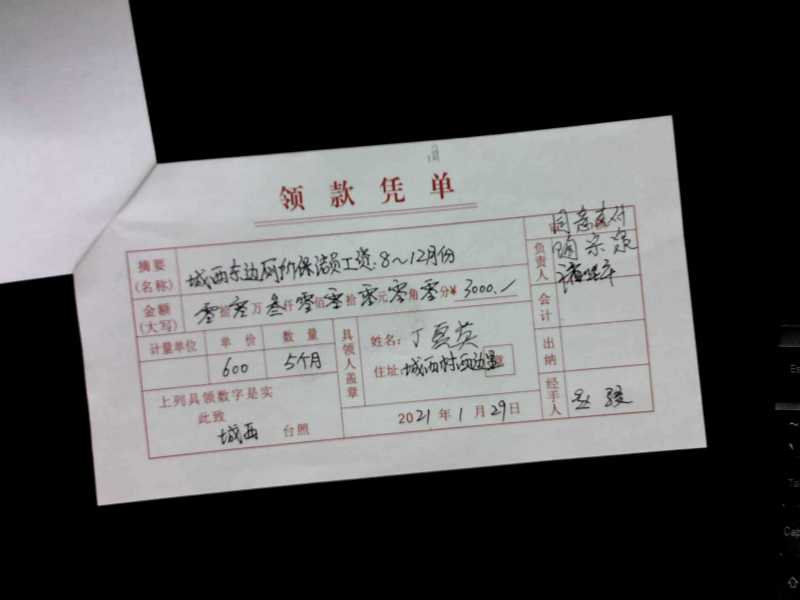 领款凭单
摘要(名称) 城西东边厕所保洁员工资:8~12月份
同意支付
负责人
金额(大写) 零拾零万叁仟零佰零拾零元零角零分¥3000.-
会计
计量单位 单价 数量
600 5个月
具领人盖章
姓名:丁
住址:城西村西边
出纳
上列具领数字是实
此致
城西 台照
2021年1月29日
经手人